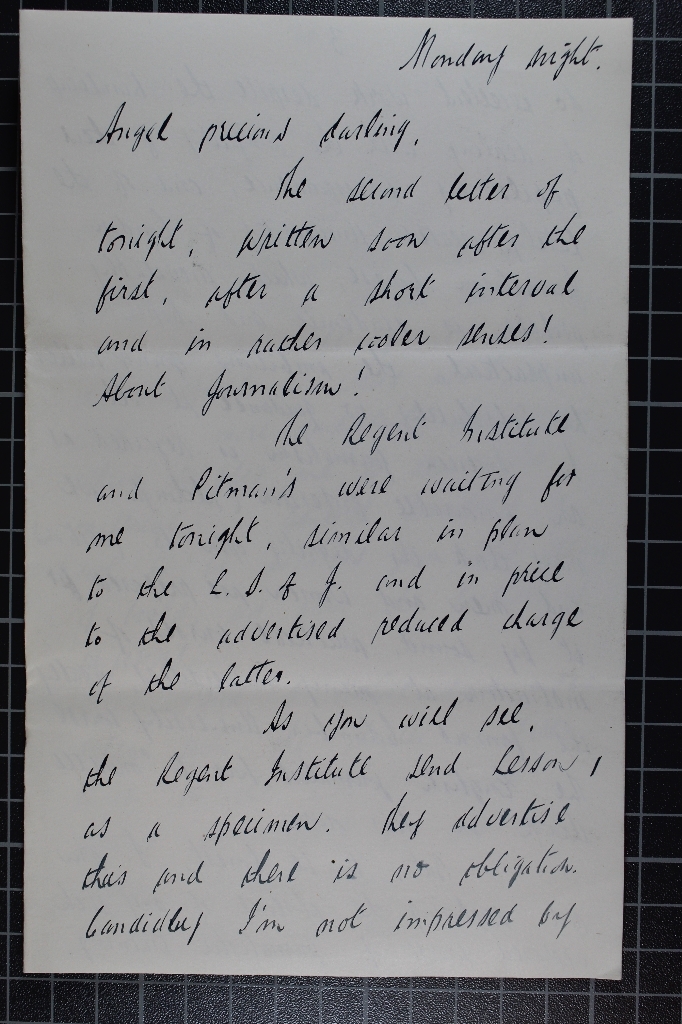 Monday night.
Angel precious darling,
The second letter of
tonight, written soon after the
first, after a short interval
and in rather cooler senses!
About Journalism!
The Regent Institute
and Pitman's were waiting for
me tonight, similar in plan
to the L. S. of J. and in price
to the advertised reduced charge
of the latter.
As you will see,
the Regent Institute send Lesson 1
as a specimen. They advertise
this and there is no obligation.
Candidly I'm not impressed by